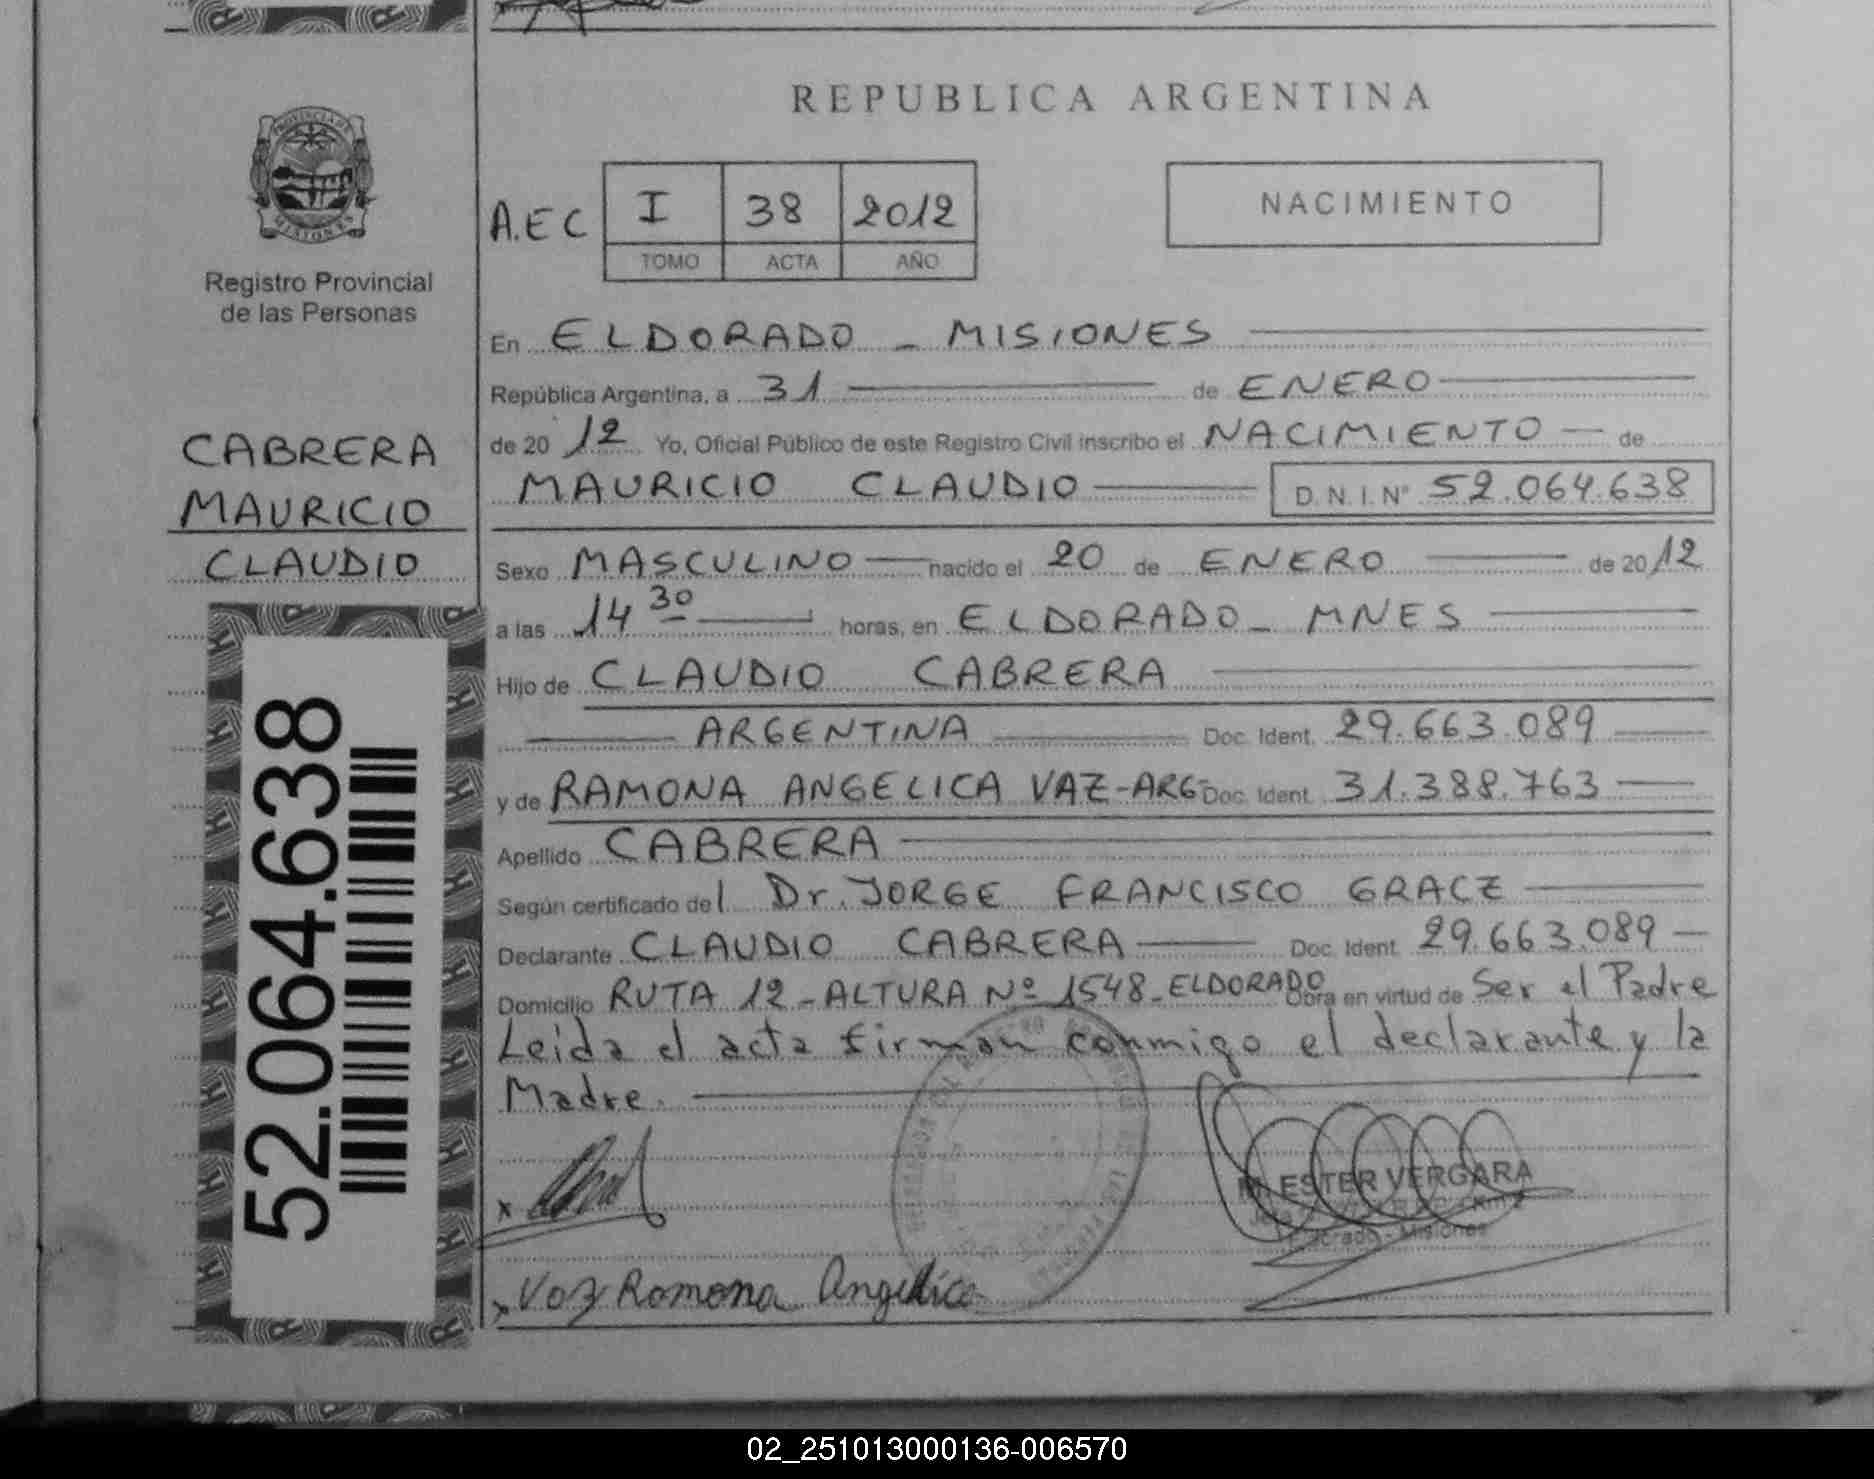 REPUBLICA ARGENTINA
PROVINCIA DE
MISIONES
Registro Provincial
de las Personas
A.E.C I 38 2012
TOMO ACTA AÑO
NACIMIENTO
CABRERA
MAURICIO
CLAUDIO
52.064.638
En ELDORADO - MISIONES
República Argentina, a 31 de ENERO
de 2012 Yo, Oficial Público de este Registro Civil inscribo el NACIMIENTO de
MAURICIO CLAUDIO D.N.I. Nº 52.064.638
Sexo MASCULINO nacido el 20 de ENERO de 2012
a las 14 30 horas, en ELDORADO - MNES
Hijo de CLAUDIO CABRERA
ARGENTINA Doc. Ident. 29.663.089
y de RAMONA ANGELICA VAZ-ARG- Doc. Ident. 31.388.763
Apellido CABRERA
Según certificado del Dr. JORGE FRANCISCO GRACZ
Declarante CLAUDIO CABRERA Doc. Ident. 29.663.089
Domicilio RUTA 12 - ALTURA Nº 1548 - ELDORADO Obra en virtud de Ser el Padre
Leida el acta firman conmigo el declarante y la
Madre.
M. ESTER VERGARA
Eldorado - Misiones
x Vaz Ramona Angelica
02_251013000136-006570